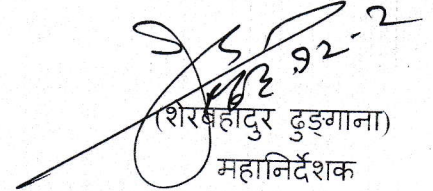 (शेरबहादुर ढुङ्गाना)
महानिर्देशक